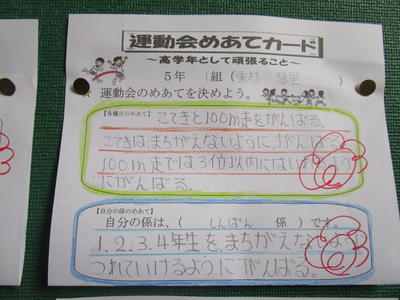 運動会めあてカード
〜高学年として頑張ること〜
5年 1組 (東村 )
運動会のめあてを決めよう。
【各種目のめあて】 こてきと100m走をがんばる。
こてきは、まちがえないように、がんばる。
100m走では3位以内にはいれるよう
にがんばる。
【自分の係のめあて】
自分の係は、( しんぱん 係 ) です。
1.2.3.4年生を、まちがえないよう
つれていけるようにがんばる。